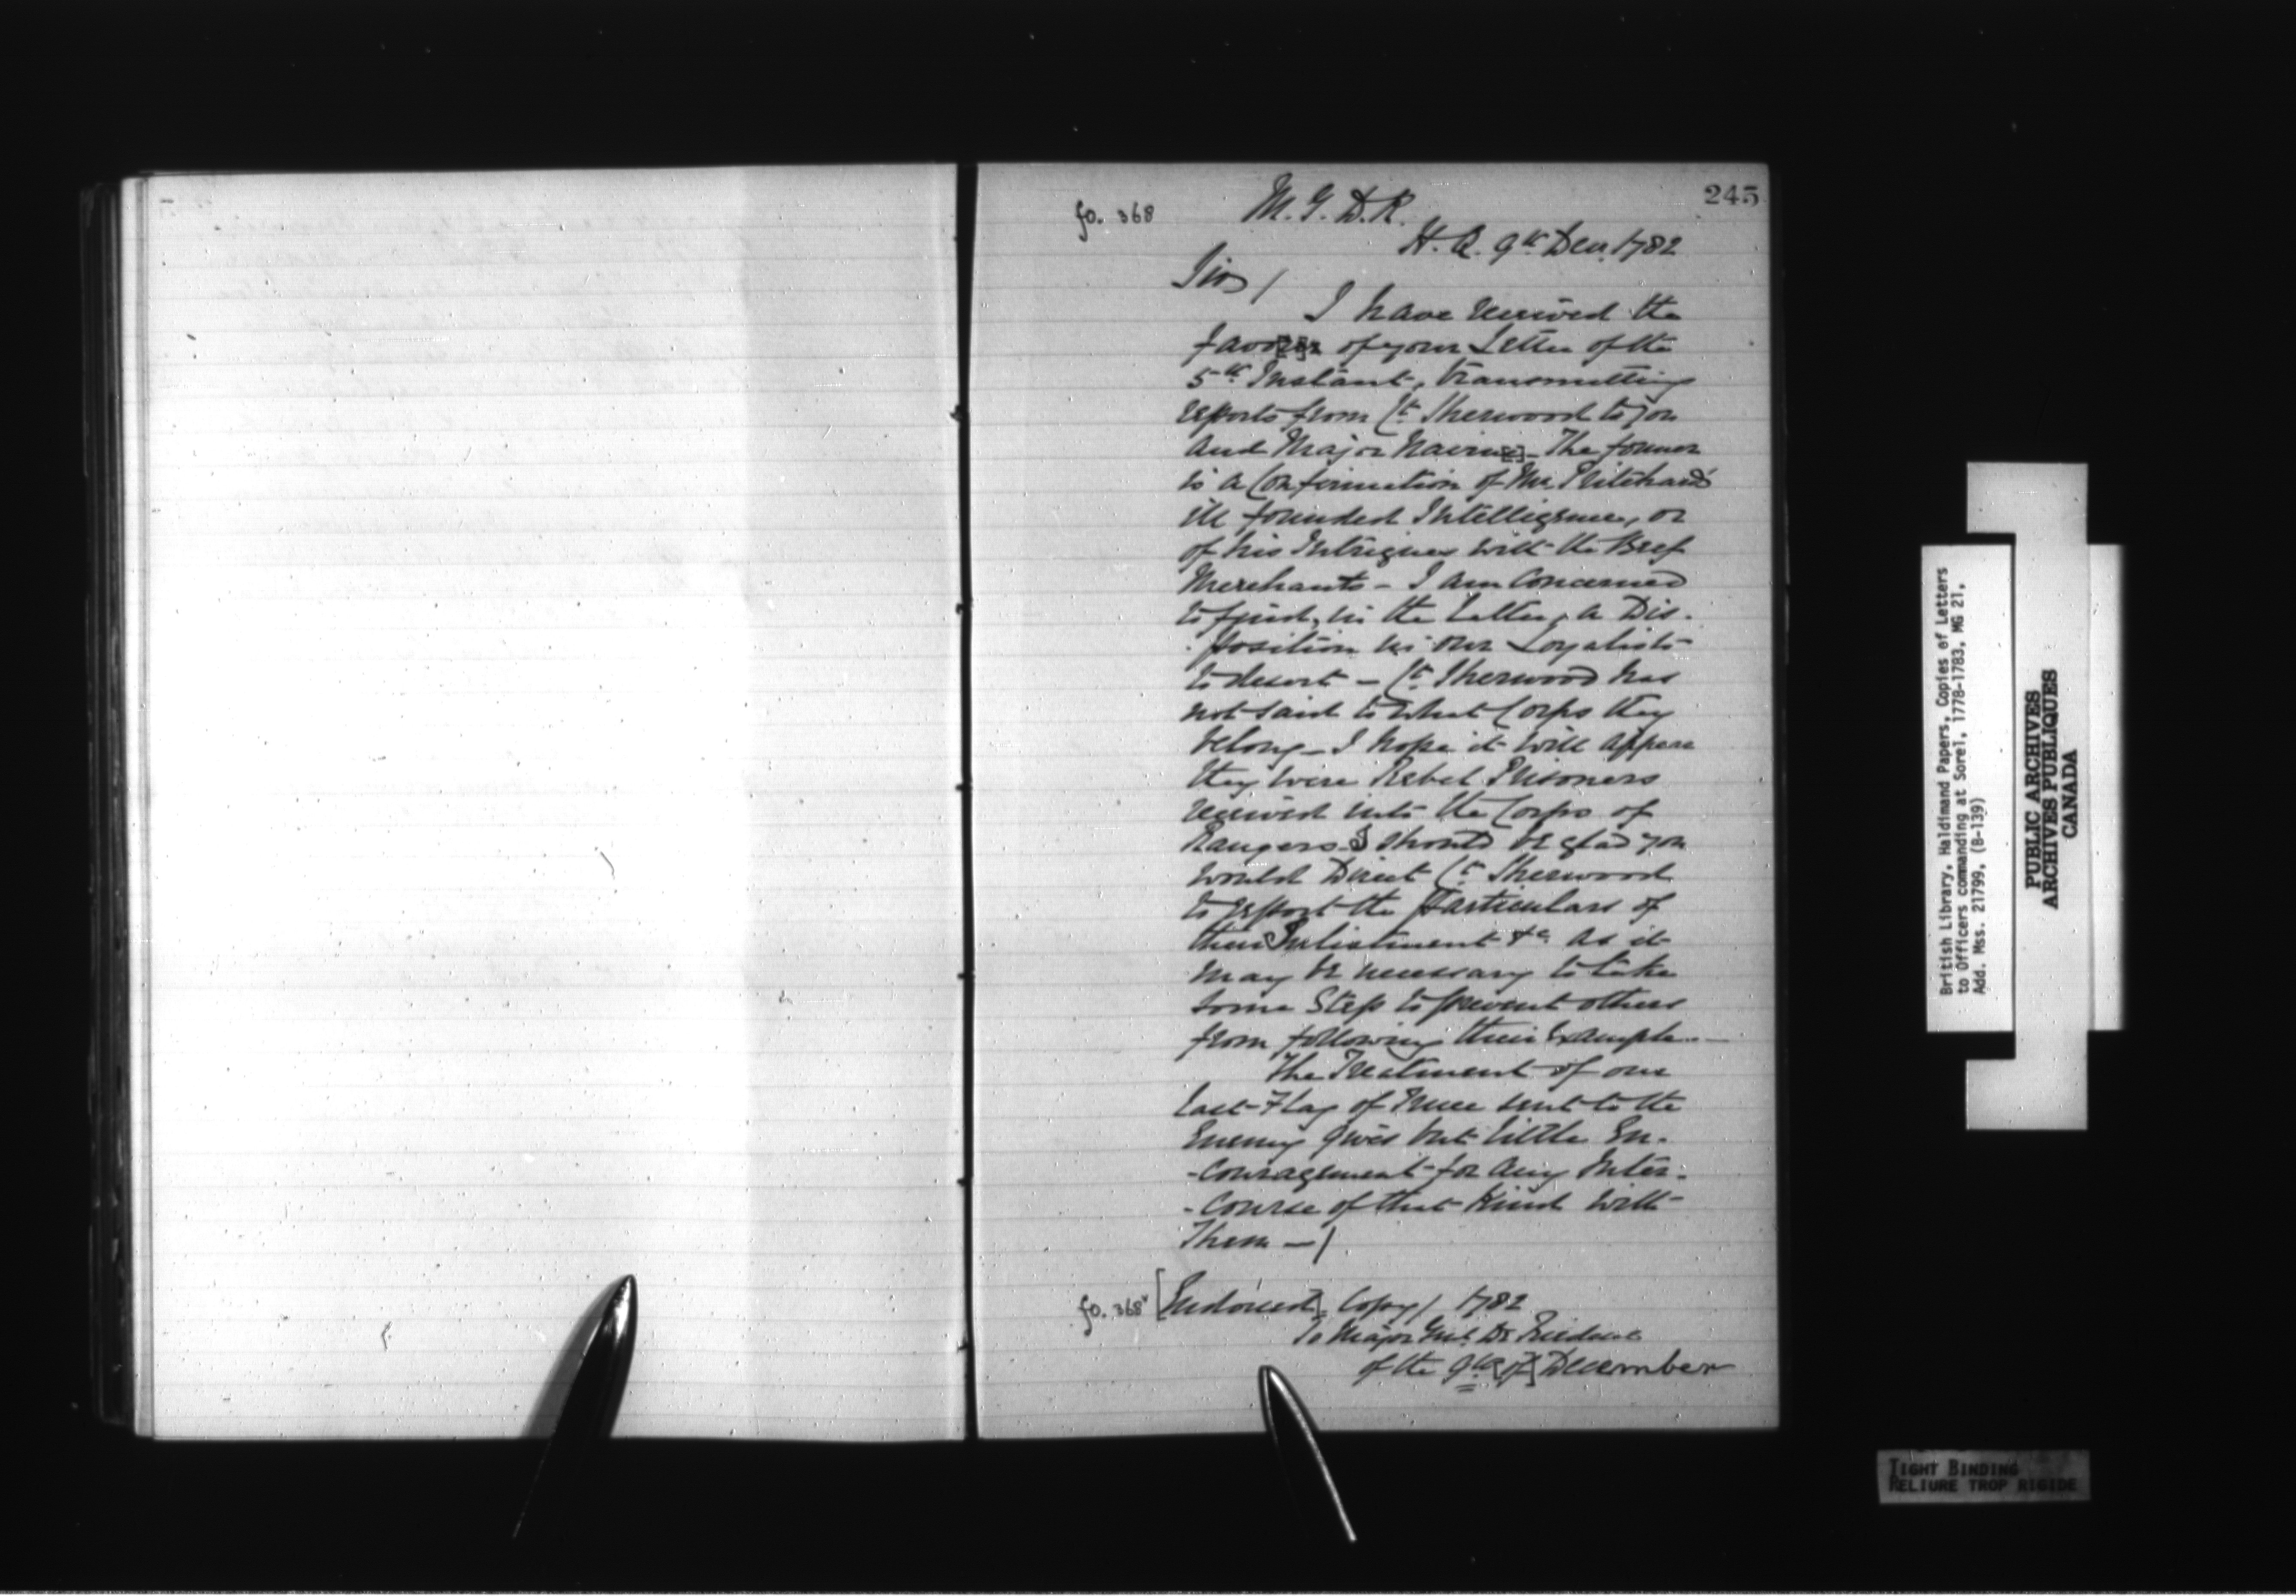 245
fo. 368
M. G. D. R.
H. Q. 9th Decr. 1782
Sir /
I have received the
favor of your Letter of the
5th Instant, transmitting
reports from Ct. Sherwood to you
and Major Nairne - The former
is a Confirmation of Mr. Pritchard's
ill founded Intelligence, or
of his Intrigues with the Beef
Merchants - I am Concerned
to find, in the Latter, a Dis-
-position in our Loyalists
to desert - Ct. Sherwood has
not said to what Corps they
belong - I hope it will appear
they were Rebel Prisoners
received into the Corps of
Rangers I should be glad you
would Direct Ct. Sherwood
to report the Particulars of
their Inlistment &c. as it
may be necessary to take
some Step to prevent others
from following their Example. -
The Treatment of our
last Flag of Truce sent to the
Enemy gives but little En-
-couragement for any Inter-
-course of that Kind with
Them - /
fo. 368v [Endorsed]. Copy / 1782
To Major Genl. De Riedesel
of the 9th [of] December
British Library, Haldimand Papers, Copies of Letters
to Officers commanding at Sorel, 1778-1783, MG 21,
Add. Mss. 21799, (B-139)
PUBLIC ARCHIVES
ARCHIVES PUBLIQUES
CANADA
TIGHT BINDING
RELIURE TROP RIGIDE